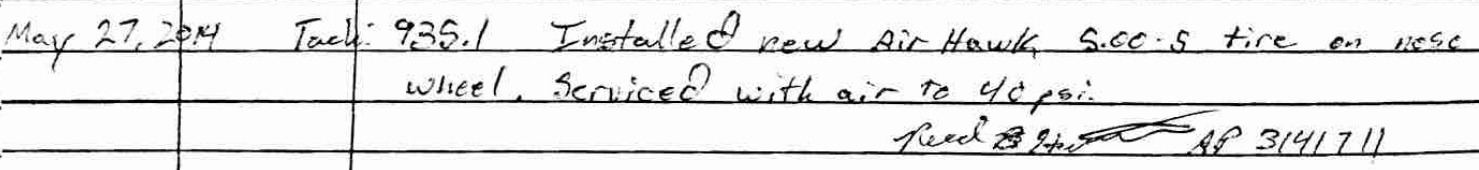 May 27, 2014 Tach: 935.1 Installed new Air Hawk 5.00-5 tire on nose
wheel. Serviced with air to 40 psi.
Reed B AP 3141711